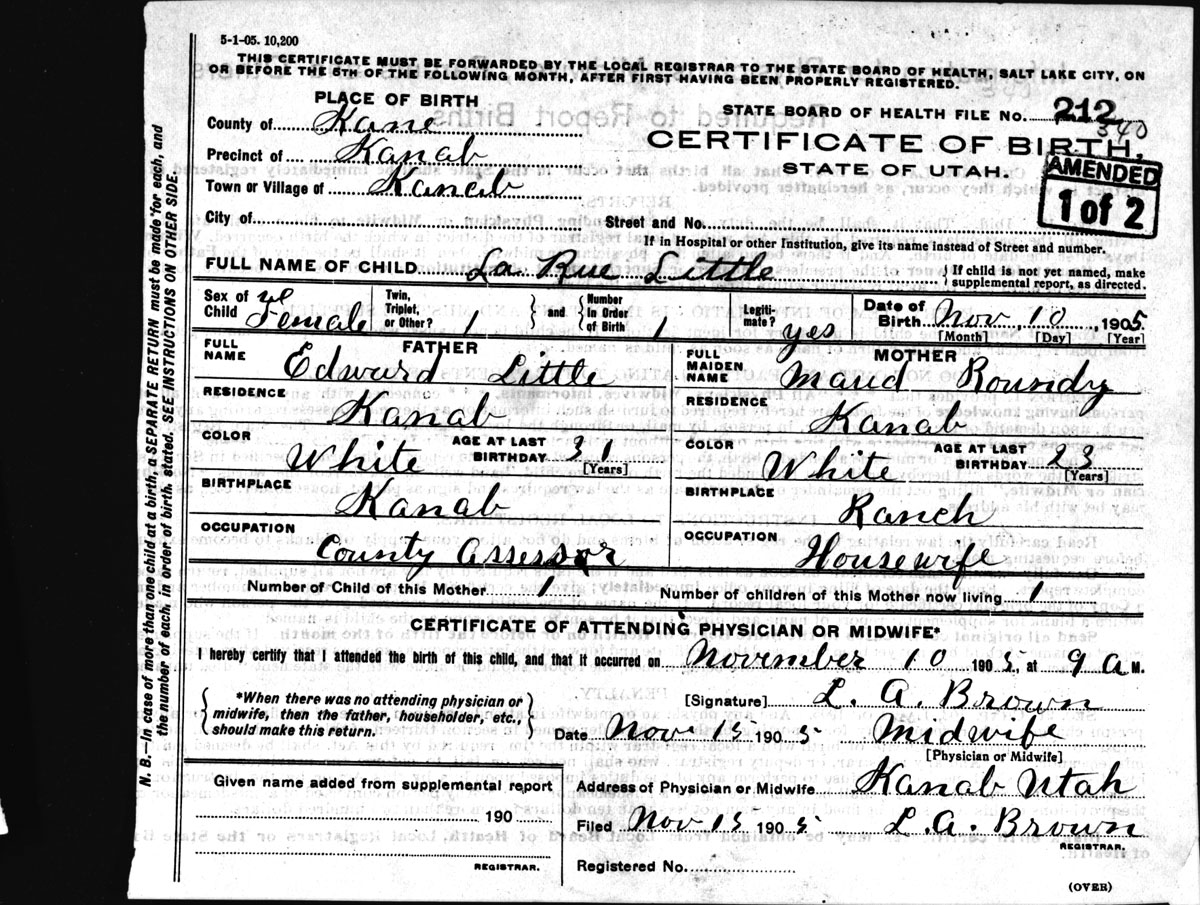 5-1-05. 10,200
THIS CERTIFICATE MUST BE FORWARDED BY THE LOCAL REGISTRAR TO THE STATE BOARD OF HEALTH, SALT LAKE CITY, ON
OR BEFORE THE 5TH OF THE FOLLOWING MONTH, AFTER FIRST HAVING BEEN PROPERLY REGISTERED.
N. B.—In case of more than one child at a birth, a SEPARATE RETURN must be made for each, and
the number of each, in order of birth, stated. SEE INSTRUCTIONS ON OTHER SIDE.
PLACE OF BIRTH
County of Kane
Precinct of Kanab
Town or Village of Kanab
STATE BOARD OF HEALTH FILE No. 212
340
CERTIFICATE OF BIRTH,
STATE OF UTAH.
AMENDED
1 of 2
City of Street and No.
If in Hospital or other Institution, give its name instead of Street and number.
FULL NAME OF CHILD La Rue Little
If child is not yet named, make
supplemental report, as directed.
Sex of Child Female
Twin, Triplet, or Other? 1
and Number in Order of Birth 1
Legitimate? yes
Date of Birth Nov 10, 1905.
[Month] [Day] [Year]
FATHER
FULL NAME Edward Little
RESIDENCE Kanab
COLOR White AGE AT LAST BIRTHDAY 31
[Years]
BIRTHPLACE Kanab
OCCUPATION County Assessor
MOTHER
FULL MAIDEN NAME Maud Roundy
RESIDENCE Kanab
COLOR White AGE AT LAST BIRTHDAY 23
[Years]
BIRTHPLACE Ranch
OCCUPATION Housewife
Number of Child of this Mother 1 Number of children of this Mother now living 1
CERTIFICATE OF ATTENDING PHYSICIAN OR MIDWIFE*
I hereby certify that I attended the birth of this child, and that it occurred on November 10 1905, at 9 a M.
*When there was no attending physician or
midwife, then the father, householder, etc.,
should make this return.
[Signature] L. A. Brown
Date Nov 15 1905 Midwife
[Physician or Midwife]
Given name added from supplemental report
190
REGISTRAR.
Address of Physician or Midwife Kanab Utah
Filed Nov 15 1905 L. A. Brown
REGISTRAR.
Registered No.
(OVER)